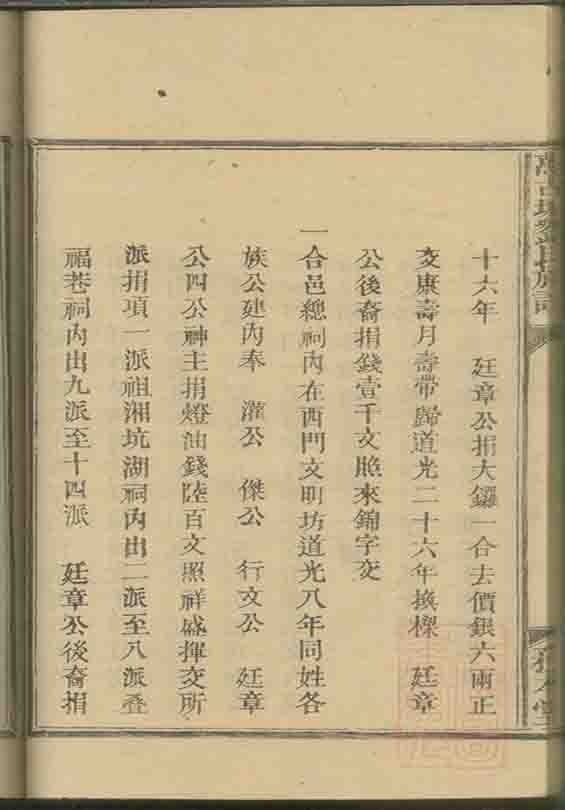 十六年　廷章公捐大鑼一合去價銀六兩正
交康壽月壽帶歸道光二十六年換樑　廷章
公後裔捐錢壹千文照來錦字交
一合邑總祠內在西門文明坊道光八年同姓各
族公建內奉　灌公　傑公　行文公　廷章
公四公神主捐燈油錢陸百文照祥盛揮交所
派捐項一派祖湘坑湖祠內出二派至八派叠
福巷祠內出九派至十四派　廷章公後裔捐